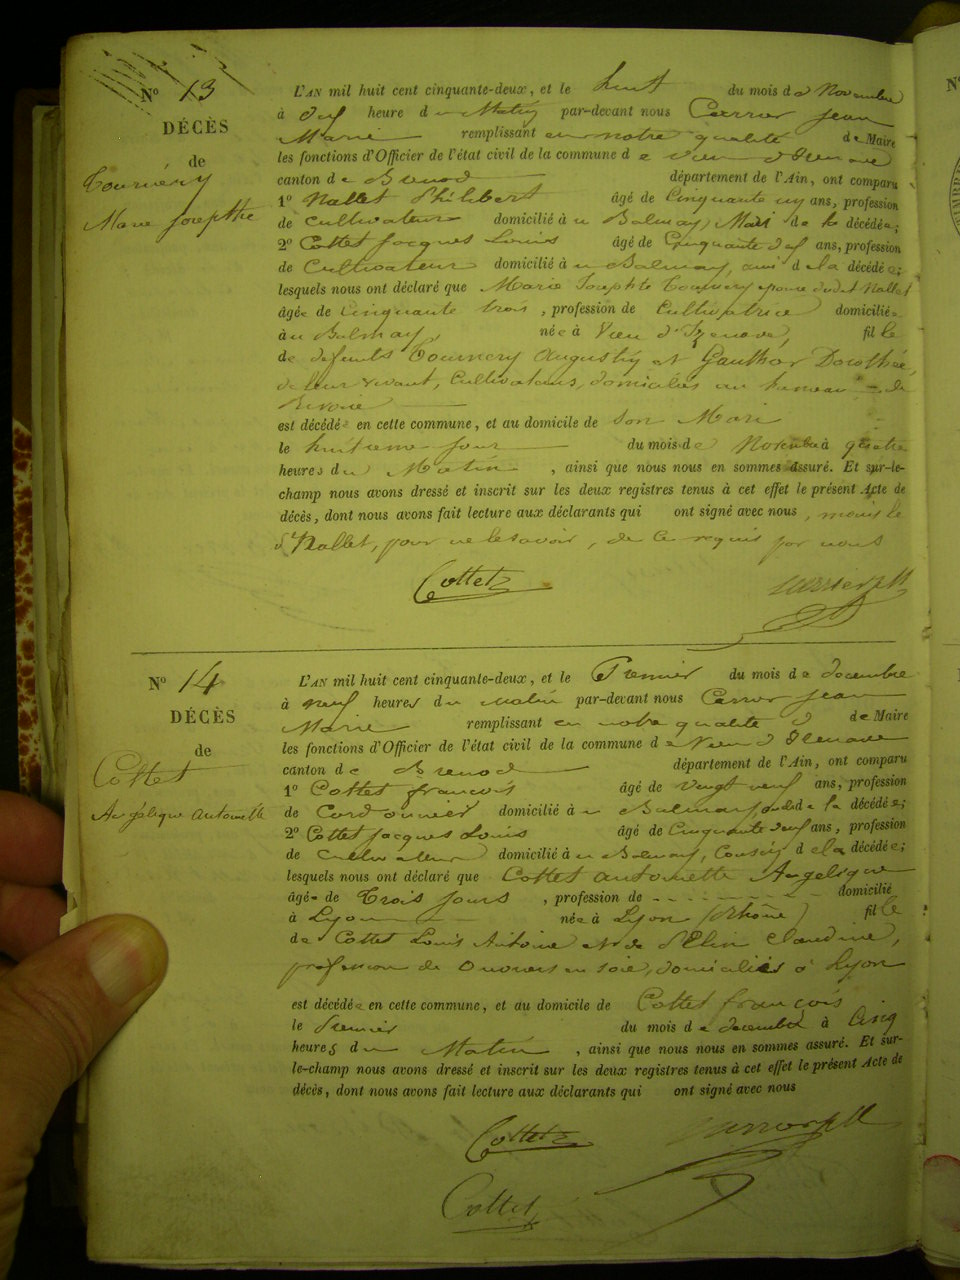 N° 13
DÉCÈS
de
Tournéry
Marie Josephte
L'AN mil huit cent cinquante-deux, et le huit du mois de Novembre
à dix heure du Matin par-devant nous Carrier Jean
Marie remplissant en notre qualité de Maire
les fonctions d'Officier de l'état civil de la commune de Vieu d'Izenave
canton de Brenod département de l'Ain, ont comparu
1° Nallet Philibert âgé de Cinquante un ans, profession
de Cultivateur domicilié à Balmay, Mari de la décédée;
2° Cottet Jacques Louis âgé de Cinquante neuf ans, profession
de Cultivateur domicilié à Balmay, ami de la décédée;
lesquels nous ont déclaré que Marie Josephte Tournery épouse dudit Nallet
âgée de Cinquante trois, profession de Cultivatrice domiciliée
à Balmay, née à Vieu d'Izenave, fille
de defunts Tournery Augustin et Gauthier Dorothée,
de leur vivant, Cultivateurs, domiciliés au hameau de
est décédée en cette commune, et au domicile de son Mari
le huitieme jour du mois de Novembre à quatre
heures du Matin, ainsi que nous nous en sommes assuré. Et sur-le-
champ nous avons dressé et inscrit sur les deux registres tenus à cet effet le présent Acte de
décès, dont nous avons fait lecture aux déclarants qui ont signé avec nous, mais le
d. Nallet, pour ne le savoir, de ce requis par nous
Cottet Carrier
N° 14
DÉCÈS
de
Cottet
Angélique Antoinette
L'AN mil huit cent cinquante-deux, et le Premier du mois de décembre
à neuf heures du matin par-devant nous Carrier Jean
Marie remplissant en notre qualité de Maire
les fonctions d'Officier de l'état civil de la commune de Vieu d'Izenave
canton de Brenod département de l'Ain, ont comparu
1° Cottet françois âgé de vingt neuf ans, profession
de Cordonnier domicilié à Balmay, de la décédée;
2° Cottet Jacques Louis âgé de Cinquante neuf ans, profession
de Cultivateur domicilié à Balmay, Cousin de la décédée;
lesquels nous ont déclaré que Cottet Antoinette Angelique
âgée de Trois jours, profession de - - - - - - domicilié
à Lyon née à Lyon (Rhône) fille
de Cottet Louis Antoine et de Claudine,
profession de Ouvriers en soie, domiciliés à Lyon
est décédée en cette commune, et au domicile de Cottet françois
le Premier du mois de décembre à Cinq
heures du Matin, ainsi que nous nous en sommes assuré. Et sur-
le-champ nous avons dressé et inscrit sur les deux registres tenus à cet effet le présent Acte de
décès, dont nous avons fait lecture aux déclarants qui ont signé avec nous
Cottet Carrier
Cottet